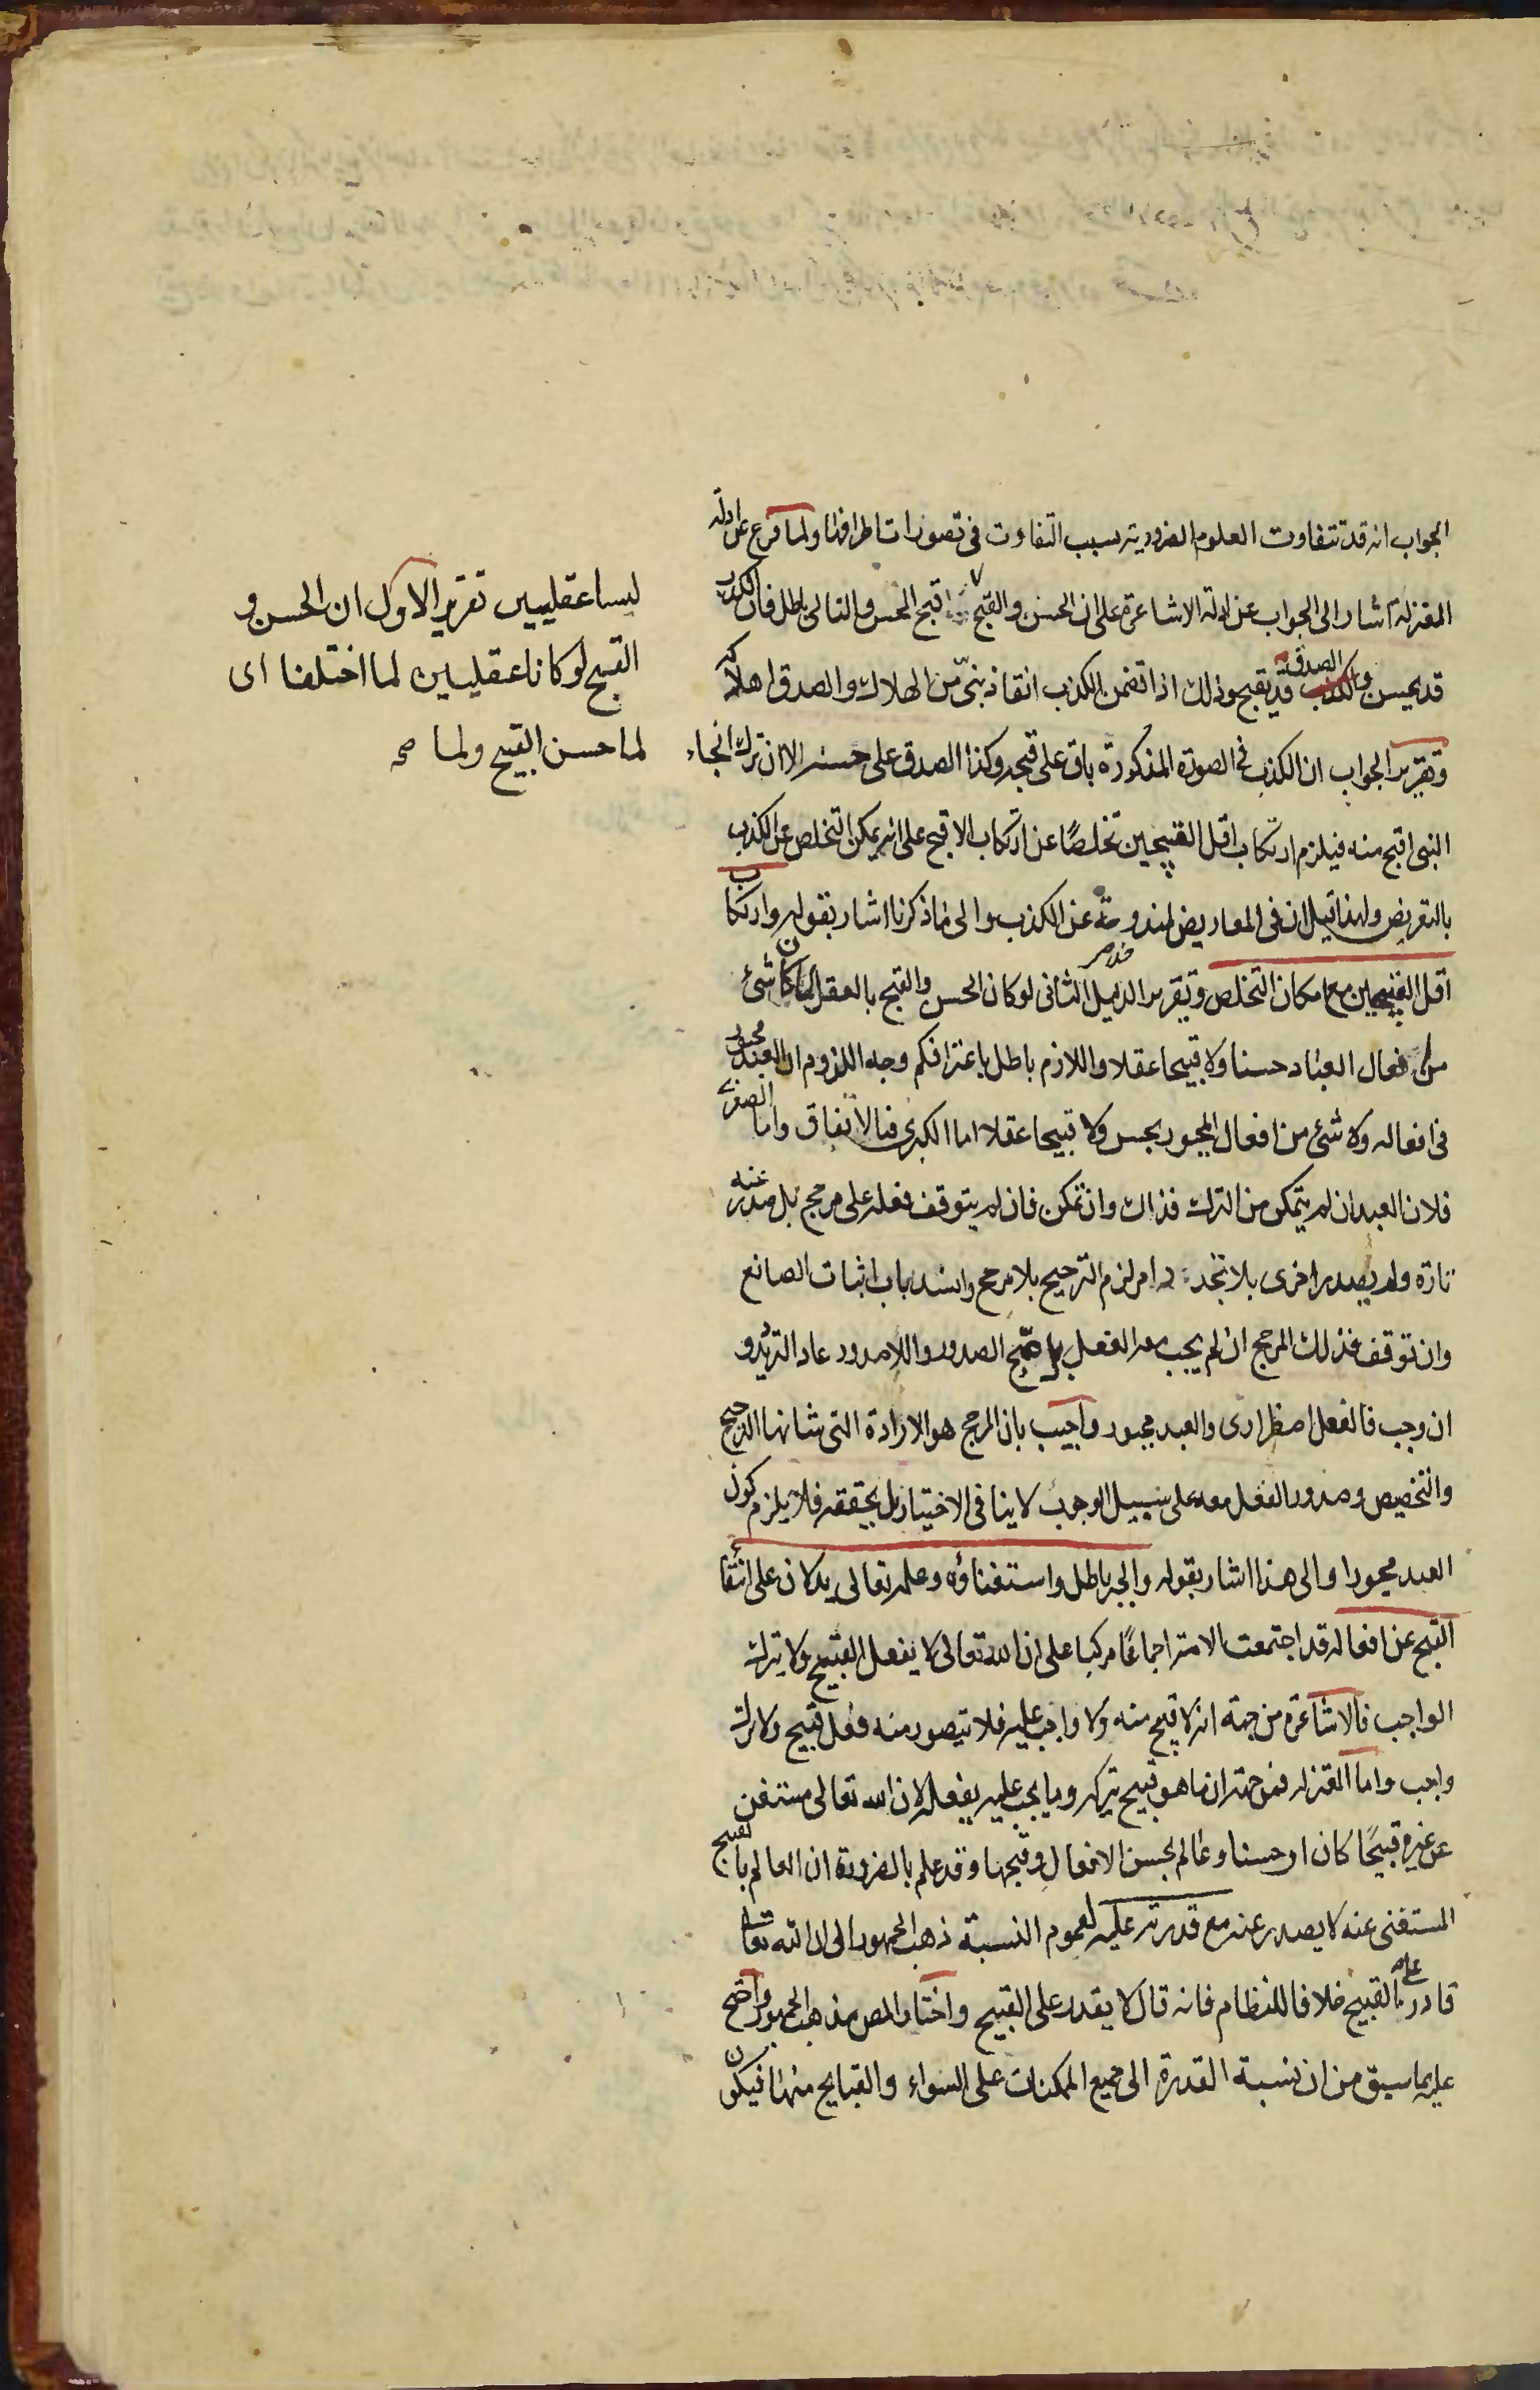 الجواب انه قد تتفاوت العلوم الضرورية بسبب التفاوت فى تصورات اطرافها ولما فرغ عن ادلة
المعتزلة اشار الى الجواب عن ادلة الاشاعرة على ان الحسن والقبح قبح الحسن والتالى باطل فان الكذب
قد يحسن والصدق قد يقبح وذلك اذا تضمن الكذب انقاذ نبىّ من الهلاك والصدق اهلاكه
وتقرير الجواب ان الكذب فى الصورة المذكورة باق على قبحه وكذا الصدق على حسنه الا ان ترك انجاء
النبى اقبح منه فيلزم ارتكاب اقل القبيحين تخلصًا عن ارتكاب الاقبح على انه يمكن التخلص عن الكذب
بالتعريض ولهذا قيل ان فى المعاريض لمندوحة عن الكذب والى ما ذكرنا اشار بقوله وارتكاب
اقل القبيحين مع امكان التخلص وتقرير الدليل الثانى لو كان الحسن والقبح بالعقل لما كان شئ
من افعال العباد حسنا ولا قبيحا عقلا واللازم باطل باعترافكم وجه اللزوم ان العبد مجبور
فى افعاله ولا شئ من افعال المجبور بحسن ولا قبيحا عقلا اما الكبرى فبالاتفاق واما الصغرى
فلان العبد ان لم يتمكن من الترك فذاك وان تمكن فان لم يتوقف فعله على مرجح بل صدر عنه
تارة ولم يصدر اخرى بلا تجدد امر لزم الترجيح بلا مرجح وانسد باب اثبات الصانع
وان توقف فذلك المرجح ان لم يجب معه الفعل بل صح الصدور واللاصدور عاد الترديد و
ان وجب فالفعل اضطرارى والعبد مجبور واجيب بان المرجح هو الارادة التى شانها الترجيح
والتخصيص وصدور الفعل معه على سبيل الوجوب لا ينافى الاختيار بل يحققه فلا يلزم كون
العبد مجبورا والى هذا اشار بقوله والجبر باطل واستغناؤه وعلمه تعالى يدلان على انتفا
القبح عن افعاله قد اجتمعت الامة اجماعًا مركبا على ان الله تعالى لا يفعل القبيح ولا يترك
الواجب فالاشاعرة من جهة انه لا قبيح منه ولا واجب عليه فلا يتصور منه فعل قبيح ولا ترك
واجب واما المعتزلة فمن جهة ان ما هو قبيح يتركه وما يجب عليه يفعله لان الله تعالى مستغن
عن غيره قبيحًا كان او حسنا وعالم بحسن الافعال وقبحها وقد علم بالضرورة ان العالم بالقبيح
المستغنى عنه لا يصدر عنه مع قدرته عليه لعموم النسبة ذهب الجمهور الى ان الله تعالى
قادر على القبيح خلافا للنظام فانه قال لا يقدر على القبيح واختار المص مذهب الجمهور واحتج
عليه بما سبق من ان نسبة القدرة الى جميع الممكنات على السواء والقبايح منها فيكون
ليسا عقليين تقرير الاول ان الحسن و
القبح لو كانا عقليين لما اختلفا اى
لما حسن القبيح ولما صح